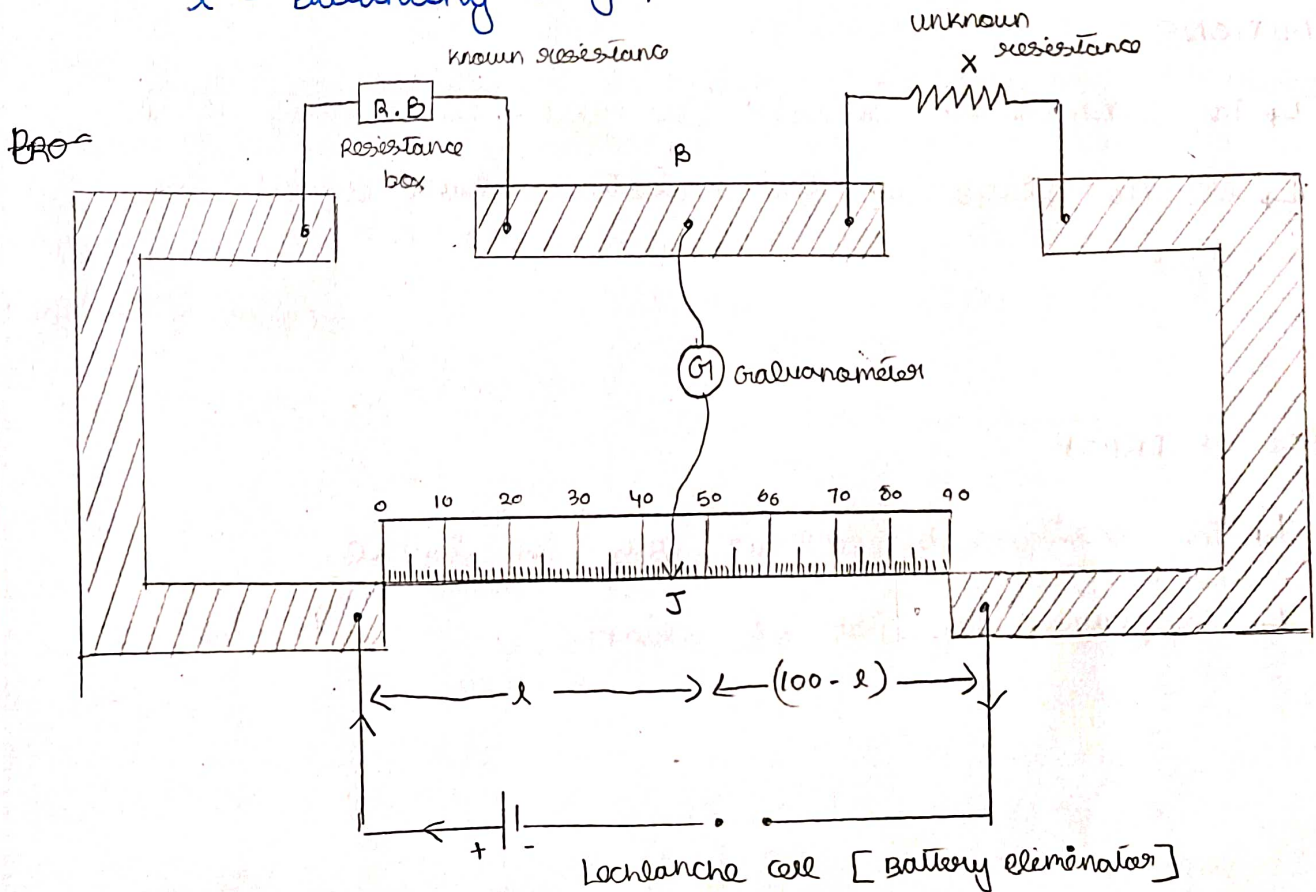 unknown
known resistance
X resistance
R.B
Resistance
box
B
G Galvanometer
0 10 20 30 40 50 66 70 80 90
J
l (100 - l)
+ -
Lechlanche cell [Battery eliminator]